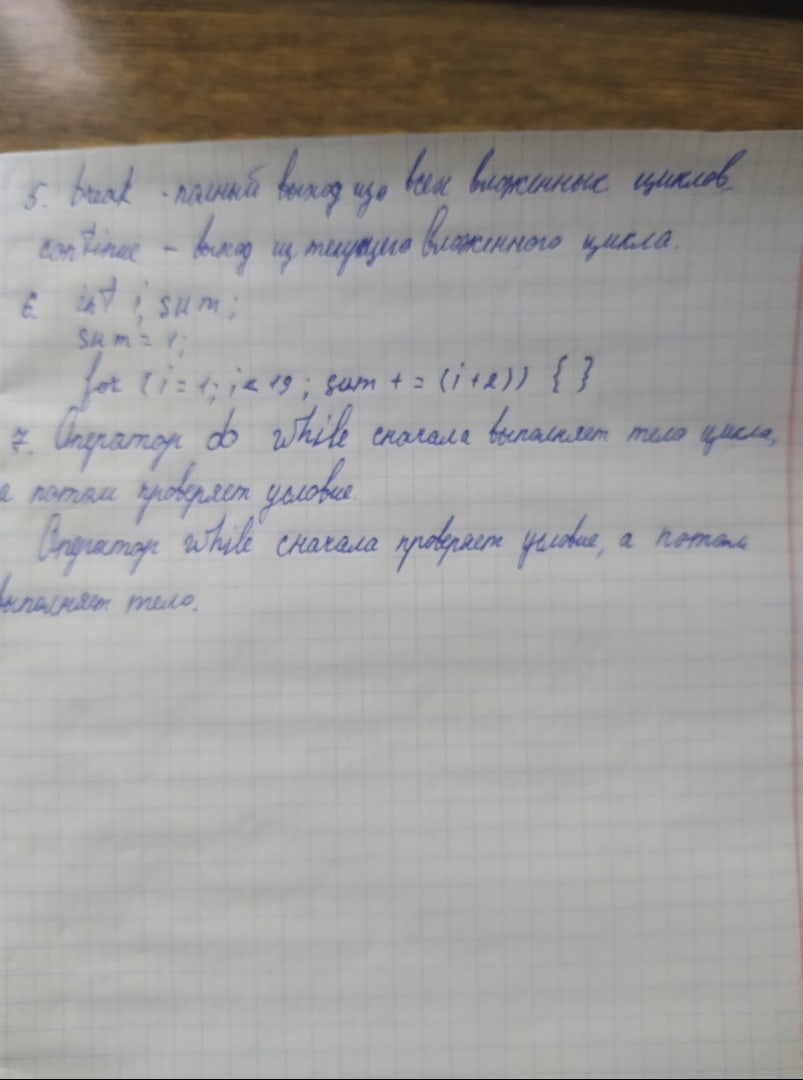 5. break - полный выход изо всех вложенных циклов.
continue - выход из текущего вложенного цикла.
6. int i, sum;
sum = 1;
for (i = 1; i < 19; sum += (i+2)) { }
7. Оператор do while сначала выполняет тело цикла,
а потом проверяет условие.
Оператор while сначала проверяет условие, а потом
выполняет тело.